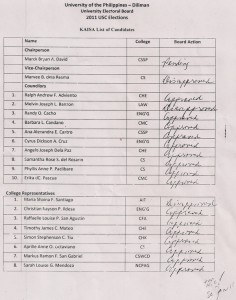 University of the Philippines – Diliman
University Electoral Board
2011 USC Elections
KAISA List of Candidates
Name College Board Action
Chairperson
Marck Bryan A. David CSSP Pending
Vice-Chairperson
CS Disapproved
Councilors
1. Ralph Andrew F. Advento CHE Approved
2. Melvin Joseph L. LAW Disapproved
3. Randy O. Cacho ENG'G Approved
4. Barbara L. Candano CMC Approved
5. Ana Alexandra E. Castro CSSP Approved
6. Cyrus Dickson A. Cruz ENG'G Approved
7. Angelo Joseph Dela Paz CHE Approved
8. Samantha Rose S. del Rosario CS Approved
9. Phyllis Anne P. CS Approved
10. C. Pascual CMC Approved
College Representatives
1. Maria Shiena F. Santiago AIT Disapproved
2. Christian Kayvan P. ENG'G Approved
3. Raffaello Louise P. San Agustin CFA Approved
4. Timothy James C. CMC Approved
5. Simon Stephenson C. CHE Approved
6. Aprille Anne D. Octaviano CS Approved
7. Markus Ramon F. San Gabriel CSWCD Approved
8. Sarah Louise G. Mendoza NCPAG Approved